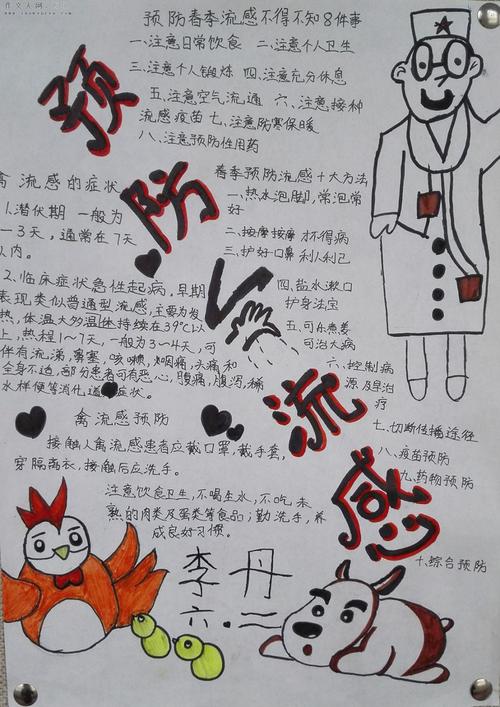 作文大网
预防春季流感不得不知8件事
一、注意日常饮食 二、注意个人卫生
三、注意个人锻炼 四、注意充分休息
五、注意空气流通 六、注意接种
流感疫苗 七、注意防寒保暖
八、注意预防性用药
预防流感
禽流感的症状
1.潜伏期 一般为
1—3天,通常在7天
以内。
2、临床症状急性起病,早期
表现类似普通型流感,主要为发
热,体温大多持续在39℃以
上,热程1~7天,一般为3~4天,可
伴有流涕,鼻塞,咳嗽,咽痛,头痛和
全身不适,部分患者可有恶心,腹痛,腹泻,稀
水样便等消化道症状。
春季预防流感十大方法
一、热水泡脚,常泡常
好
二、按摩按摩 不得病
三、护好口鼻 利人利己
四、盐水漱口
护身法宝
五、可乐煮姜
可治大病
六、控制病
源及早治
疗
七、切断传播途径
八、疫苗预防
九、药物预防
十、综合预防
禽流感预防
接触人禽流感患者应戴口罩,戴手套,
穿隔离衣,接触后应洗手。
注意饮食卫生,不喝生水,不吃未
熟的肉类及蛋类等食品;勤洗手,养
成良好习惯。
李丹
六.二